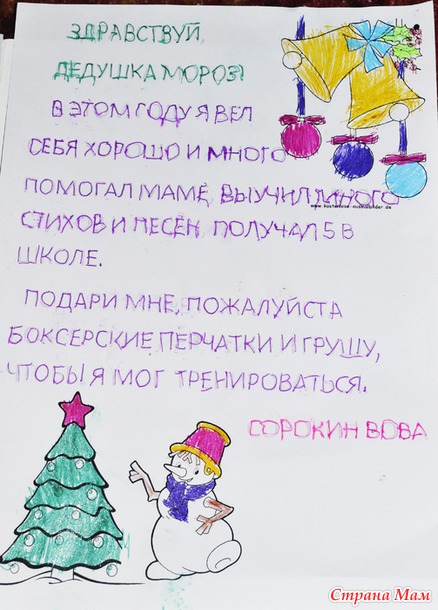 ЗДРАВСТВУЙ,
ДЕДУШКА МОРОЗ!
В ЭТОМ ГОДУ Я ВЕЛ
СЕБЯ ХОРОШО И МНОГО
ПОМОГАЛ МАМЕ, ВЫУЧИЛ МНОГО
СТИХОВ И ПЕСЕН, ПОЛУЧАЛ 5 В
ШКОЛЕ.
ПОДАРИ МНЕ, ПОЖАЛУЙСТА
БОКСЕРСКИЕ ПЕРЧАТКИ И ГРУШУ,
ЧТОБЫ Я МОГ ТРЕНИРОВАТЬСЯ.
СОРОКИН ВОВА
Страна Мам